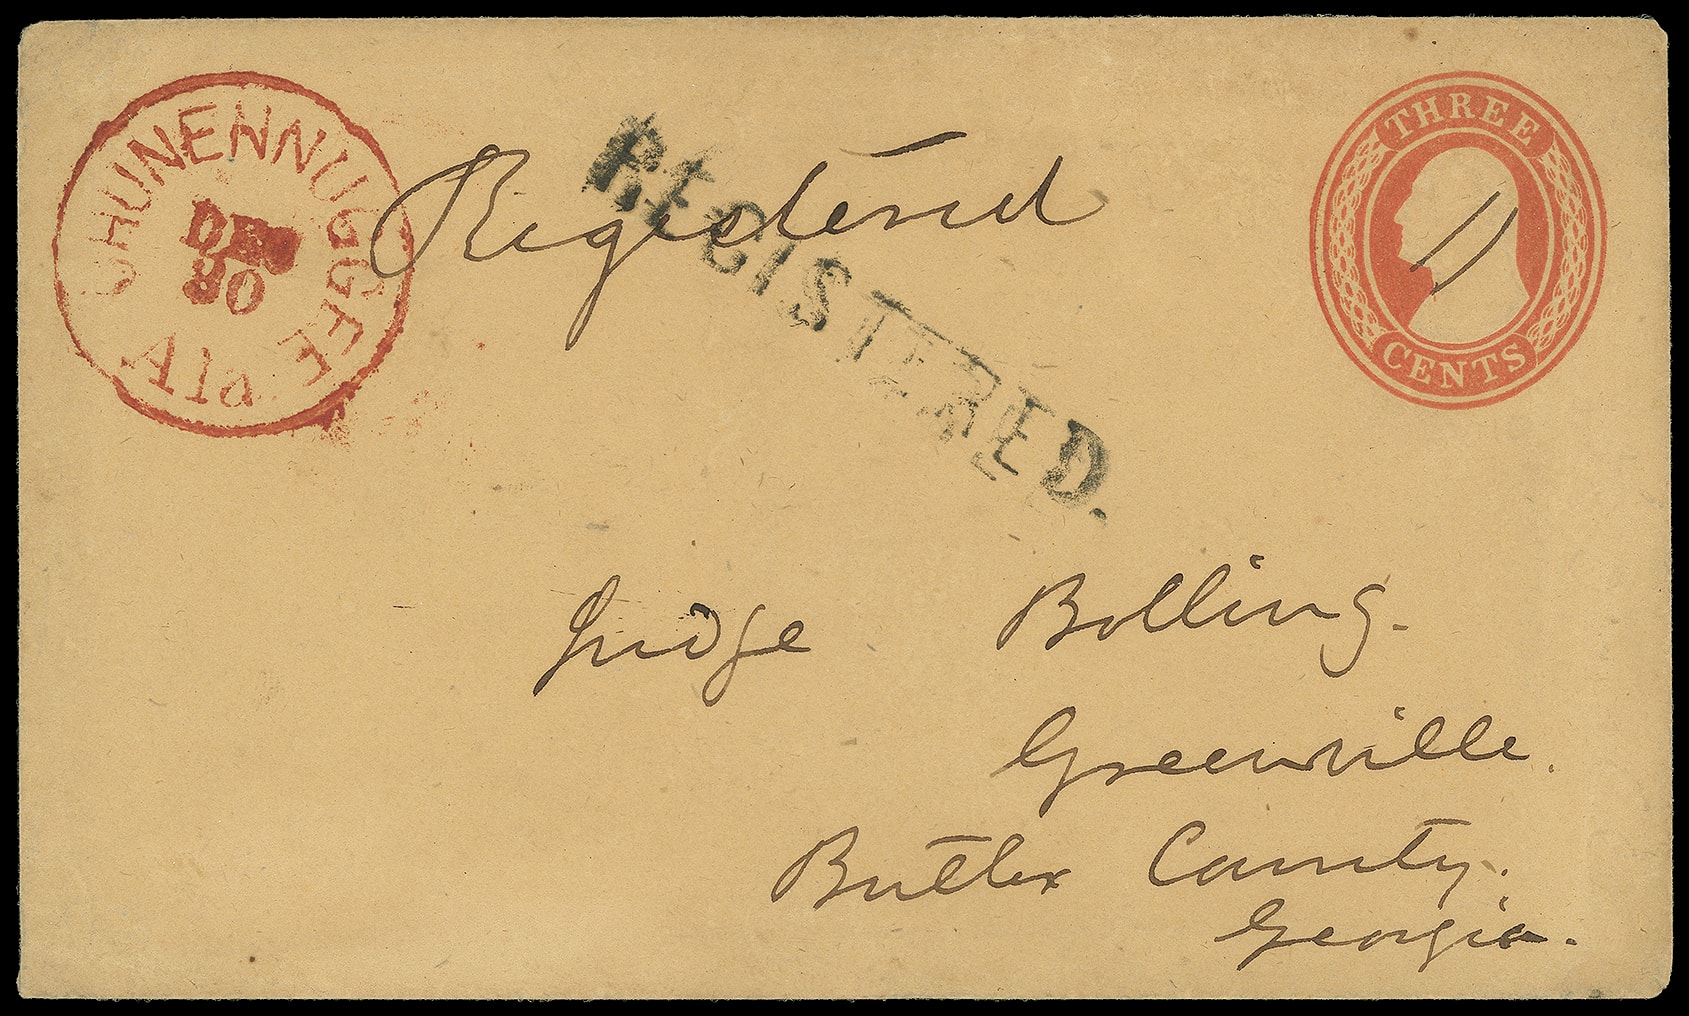 CHUNENNUGGEE Ala
DEC
30
Registered
REGISTERED.
THREE
CENTS
Judge Bolling.
Greenville.
Butler County.
Georgia.